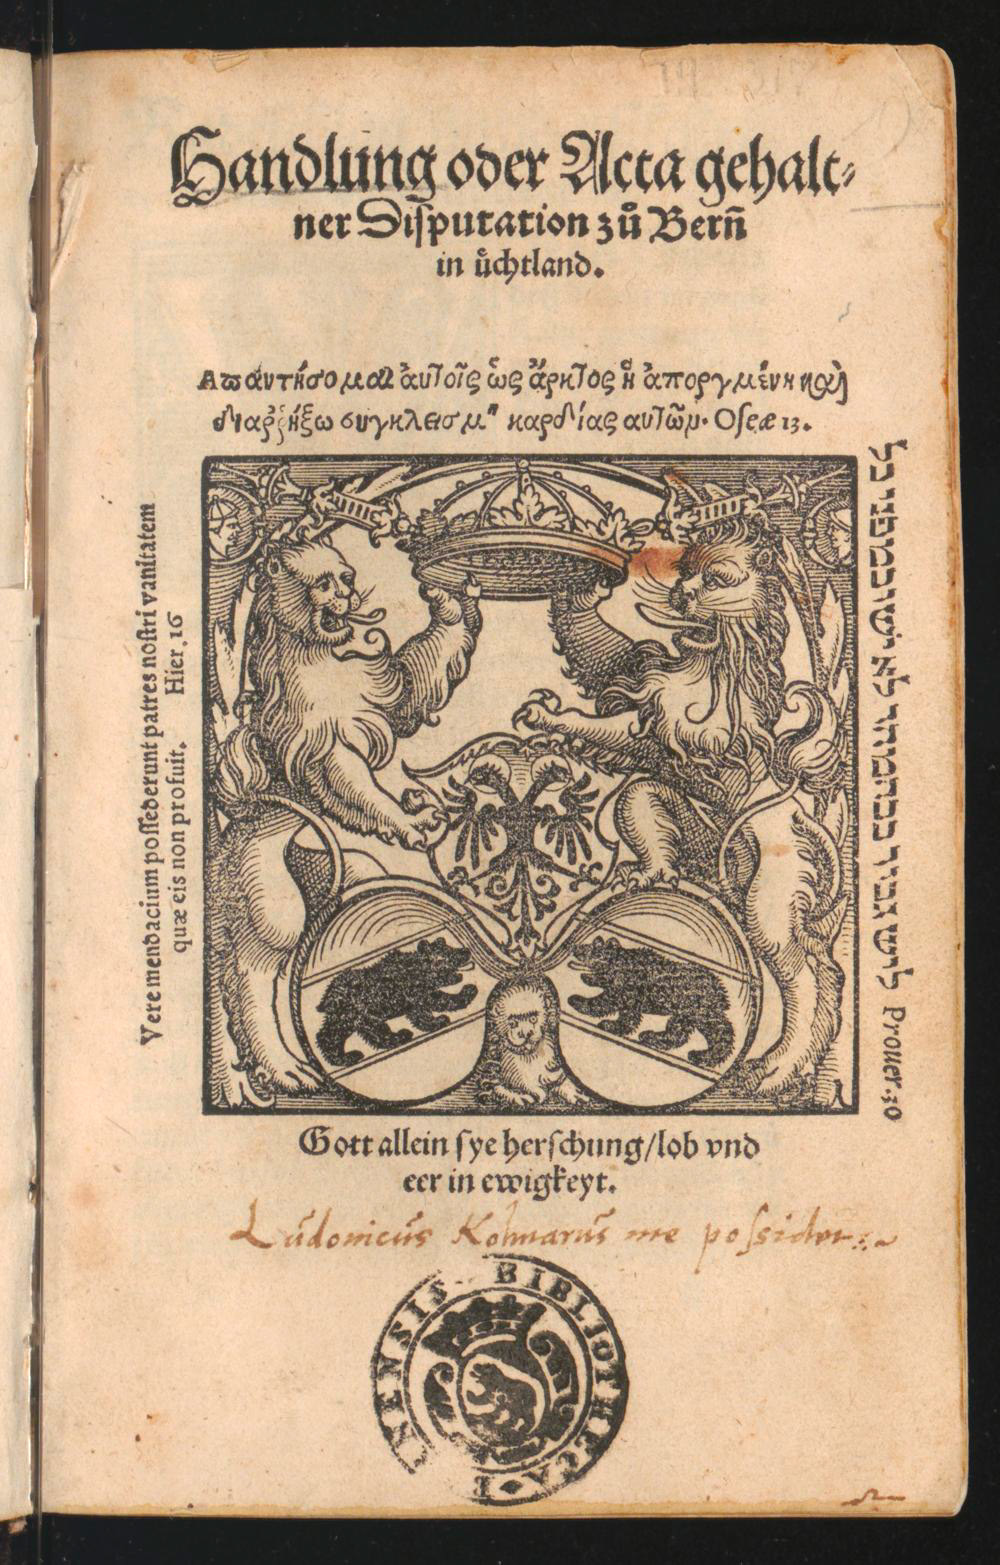 Handlung oder Acta gehalt⸗
ner Disputation zů Berñ
in ůchtland.
Απαντήσομαι ἀυτοῖς ὡς ἄρκτος ἡ ἀποργμένη καὶ
διαῤῥήξω συγκλεισμὸν καρδίας αυτῶν. Oseæ 13.
Vere mendacium possederunt patres nostri vanitatem
quæ eis non profuit. Hier. 16
ליש גבור בבהמה ולא ישוב מפני כל Prouer. 30
Gott allein sye herschung/lob vnd
eer in ewigkeyt.
Ludonicus Kolmarus me possidet
BIBLIOTHECA BERNENSIS